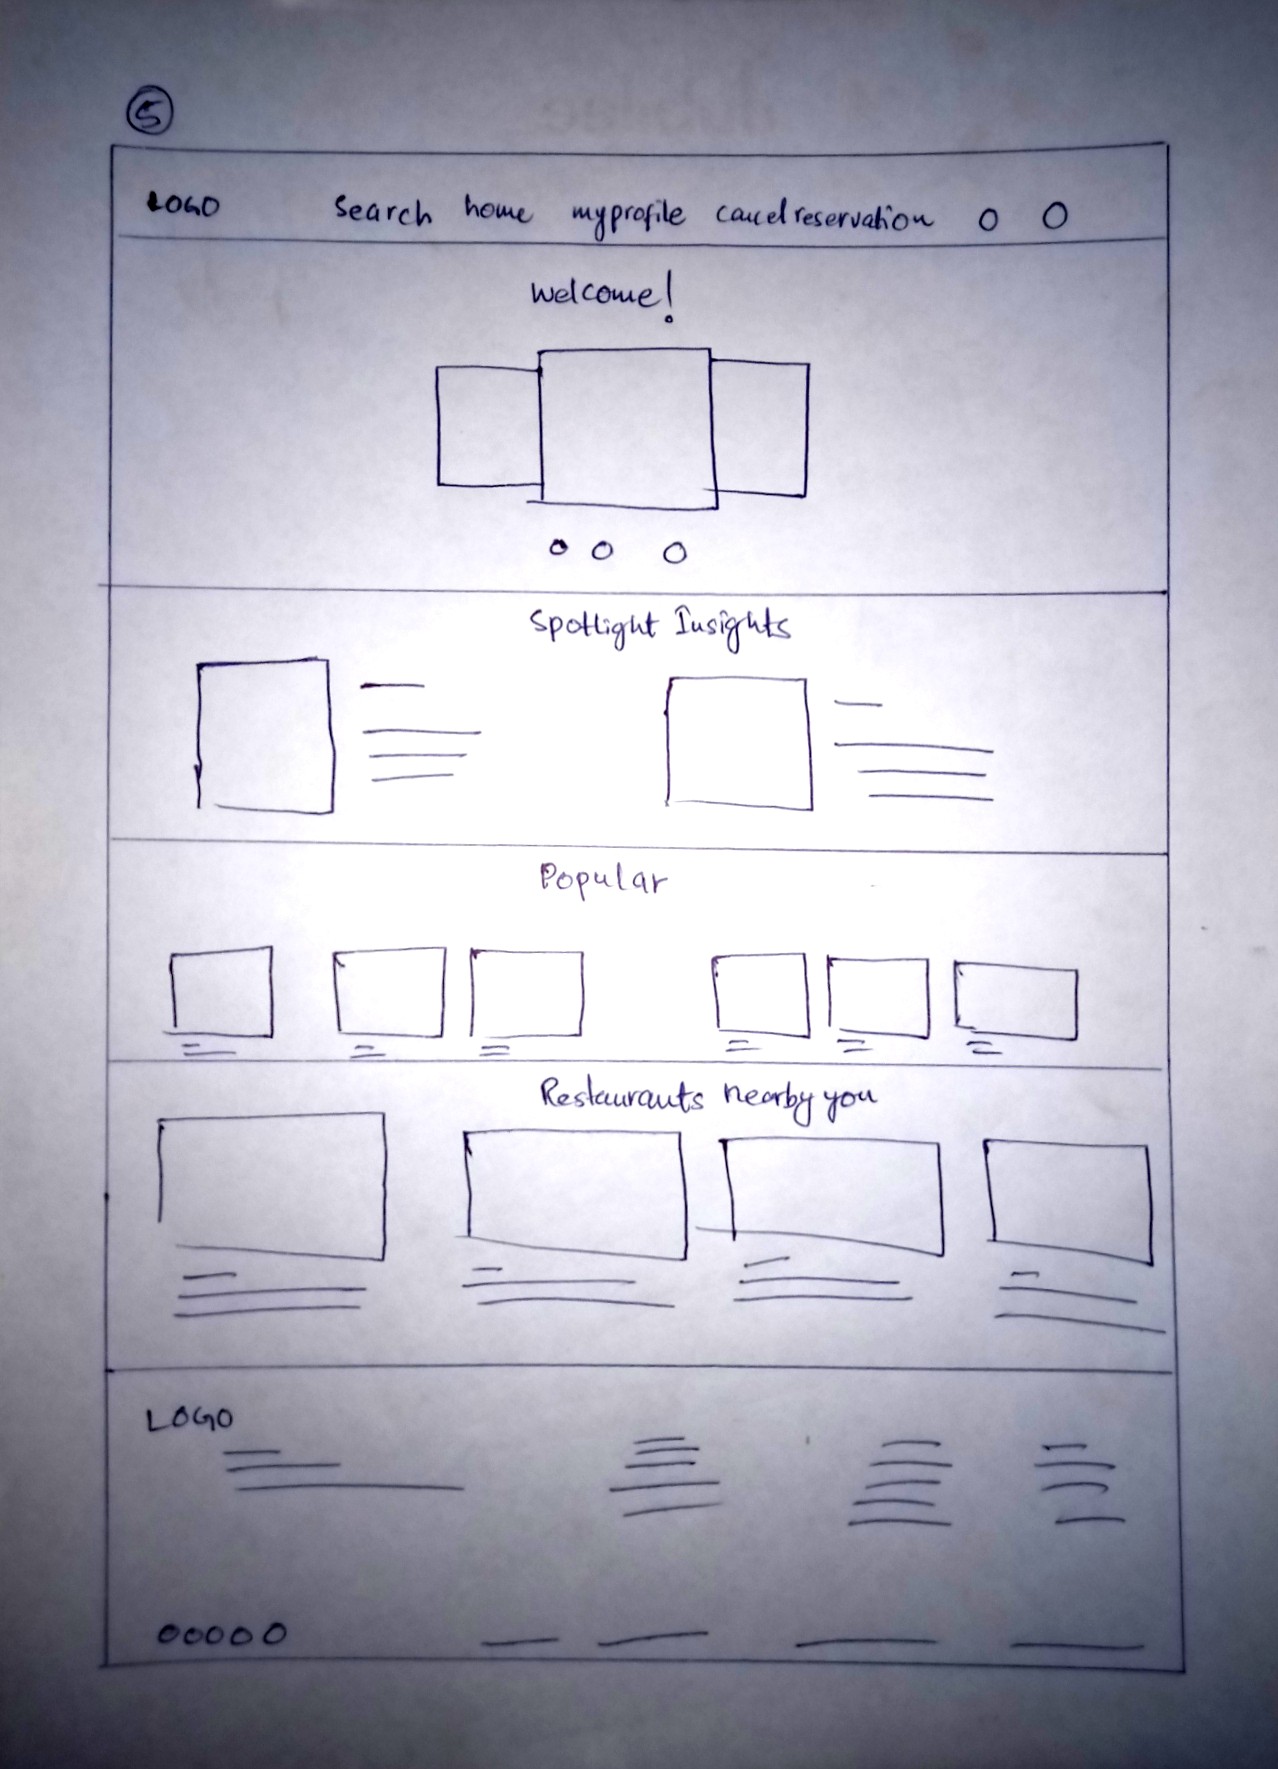 5
LOGO search home my profile cancel reservation
Welcome!
Spotlight Insights
Popular
Restaurants nearby you
LOGO